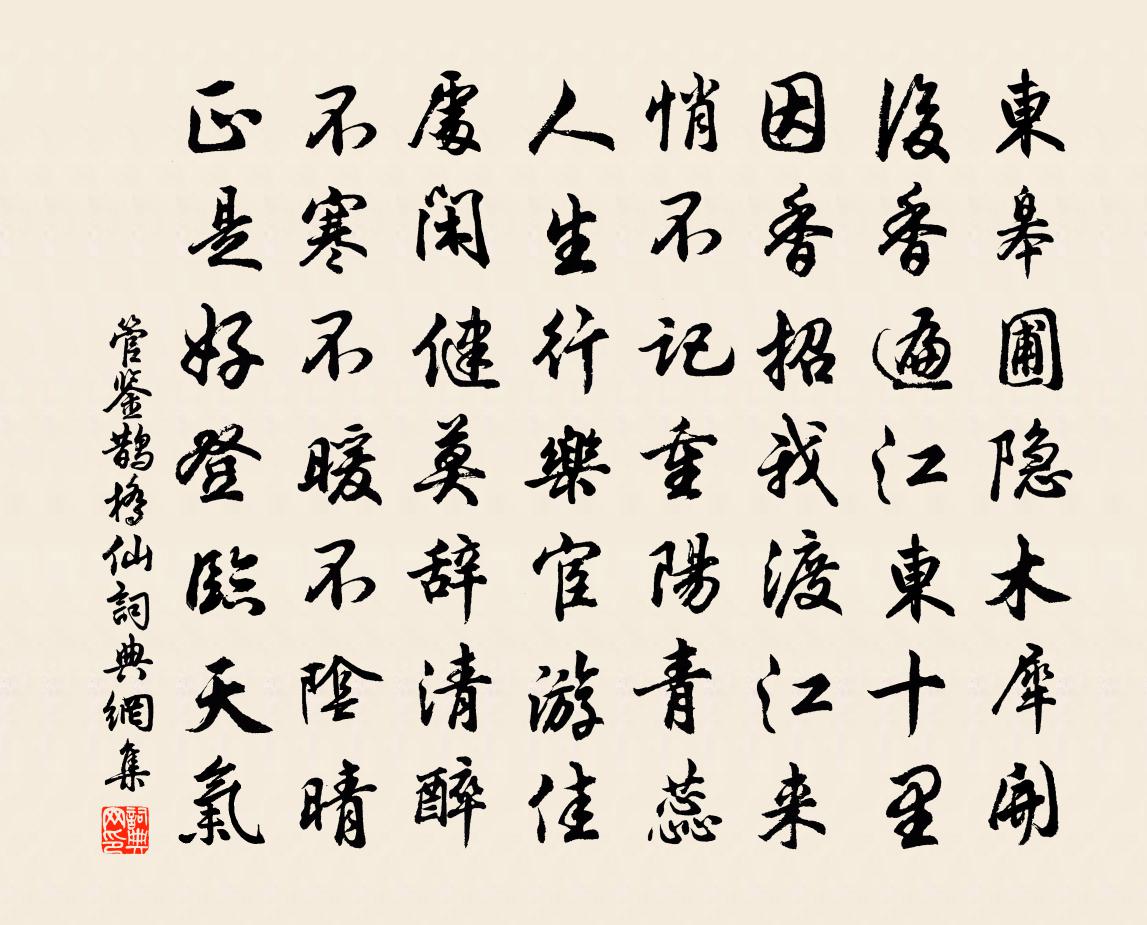 東皋圃隐木犀開
後香遍江東十里
因香招我渡江来
悄不記重陽青蕊
人生行樂宦游佳
處閑健莫辞清醉
不寒不暖不陰晴
正是好登臨天氣
管鉴鵲橋仙詞典網集
詞典网印